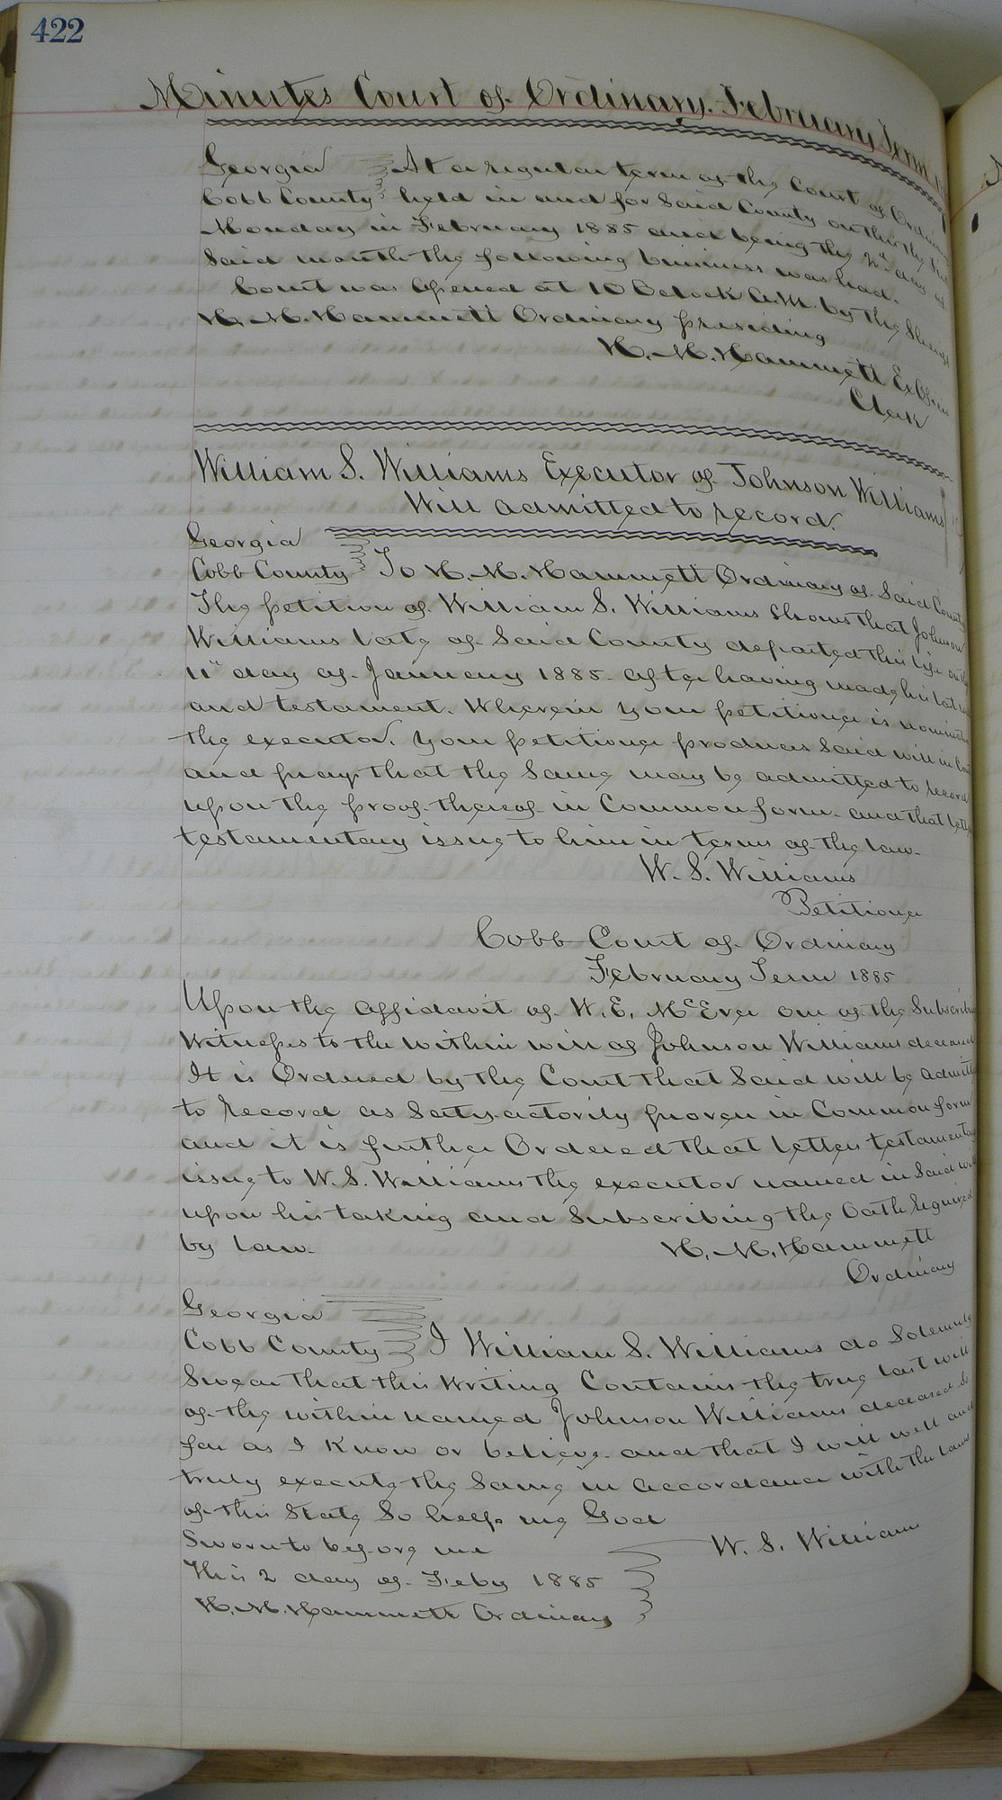 422
Minutes Court of Ordinary. February Term
Georgia At a regular term of the Court of Ordinary
Cobb County held in and for Said County on this the first
Monday in February 1885 and being the 2nd day of
Said month the following business was had.
Court was opened at 10 Oclock A.M. by the Sheriff
H. M. Hammett Ordinary presiding
H. M. Hammett Ex Offi
Clerk
William S. Williams Executor of Johnson Williams
Will admitted to record.
Georgia
Cobb County To H. M. Hammett Ordinary of Said County
The petition of William S. Williams Shows that Johnson
Williams late of Said County departed this life on the
11" day of January 1885. after having made his last will
and testament. Wherein your petitioner is nominated
the executor. Your petitioner produces Said will in Court
and prays that the Same may be admitted to record
upon the proof thereof in Common form. and that letters
testamentary issue to him in terms of the law.
W. S. Williams
Petitioner
Cobb Court of Ordinary
February Term 1885
Upon the affidavit of W. E. McEver one of the Subscribing
Witnesses to the within will of Johnson Williams deceased
It is Ordered by the Court that Said will be admitted
to record as Satisfactorily proven in Common form
and it is further Ordered that letters testamentary
issue to W. S. Williams the executor named in Said will
upon his taking and Subscribing the Oath required
by law.
H. M. Hammett
Ordinary
Georgia
Cobb County I William S. Williams do Solemnly
Swear that this Writing Contains the true last will
of the within named Johnson Williams deceased So
far as I Know or believe. and that I will well and
truly execute the Same in accordance with the laws
of this State So help me God
Sworn to before me W. S. Williams
This 2 day of Feby 1885
H. M. Hammett Ordinary